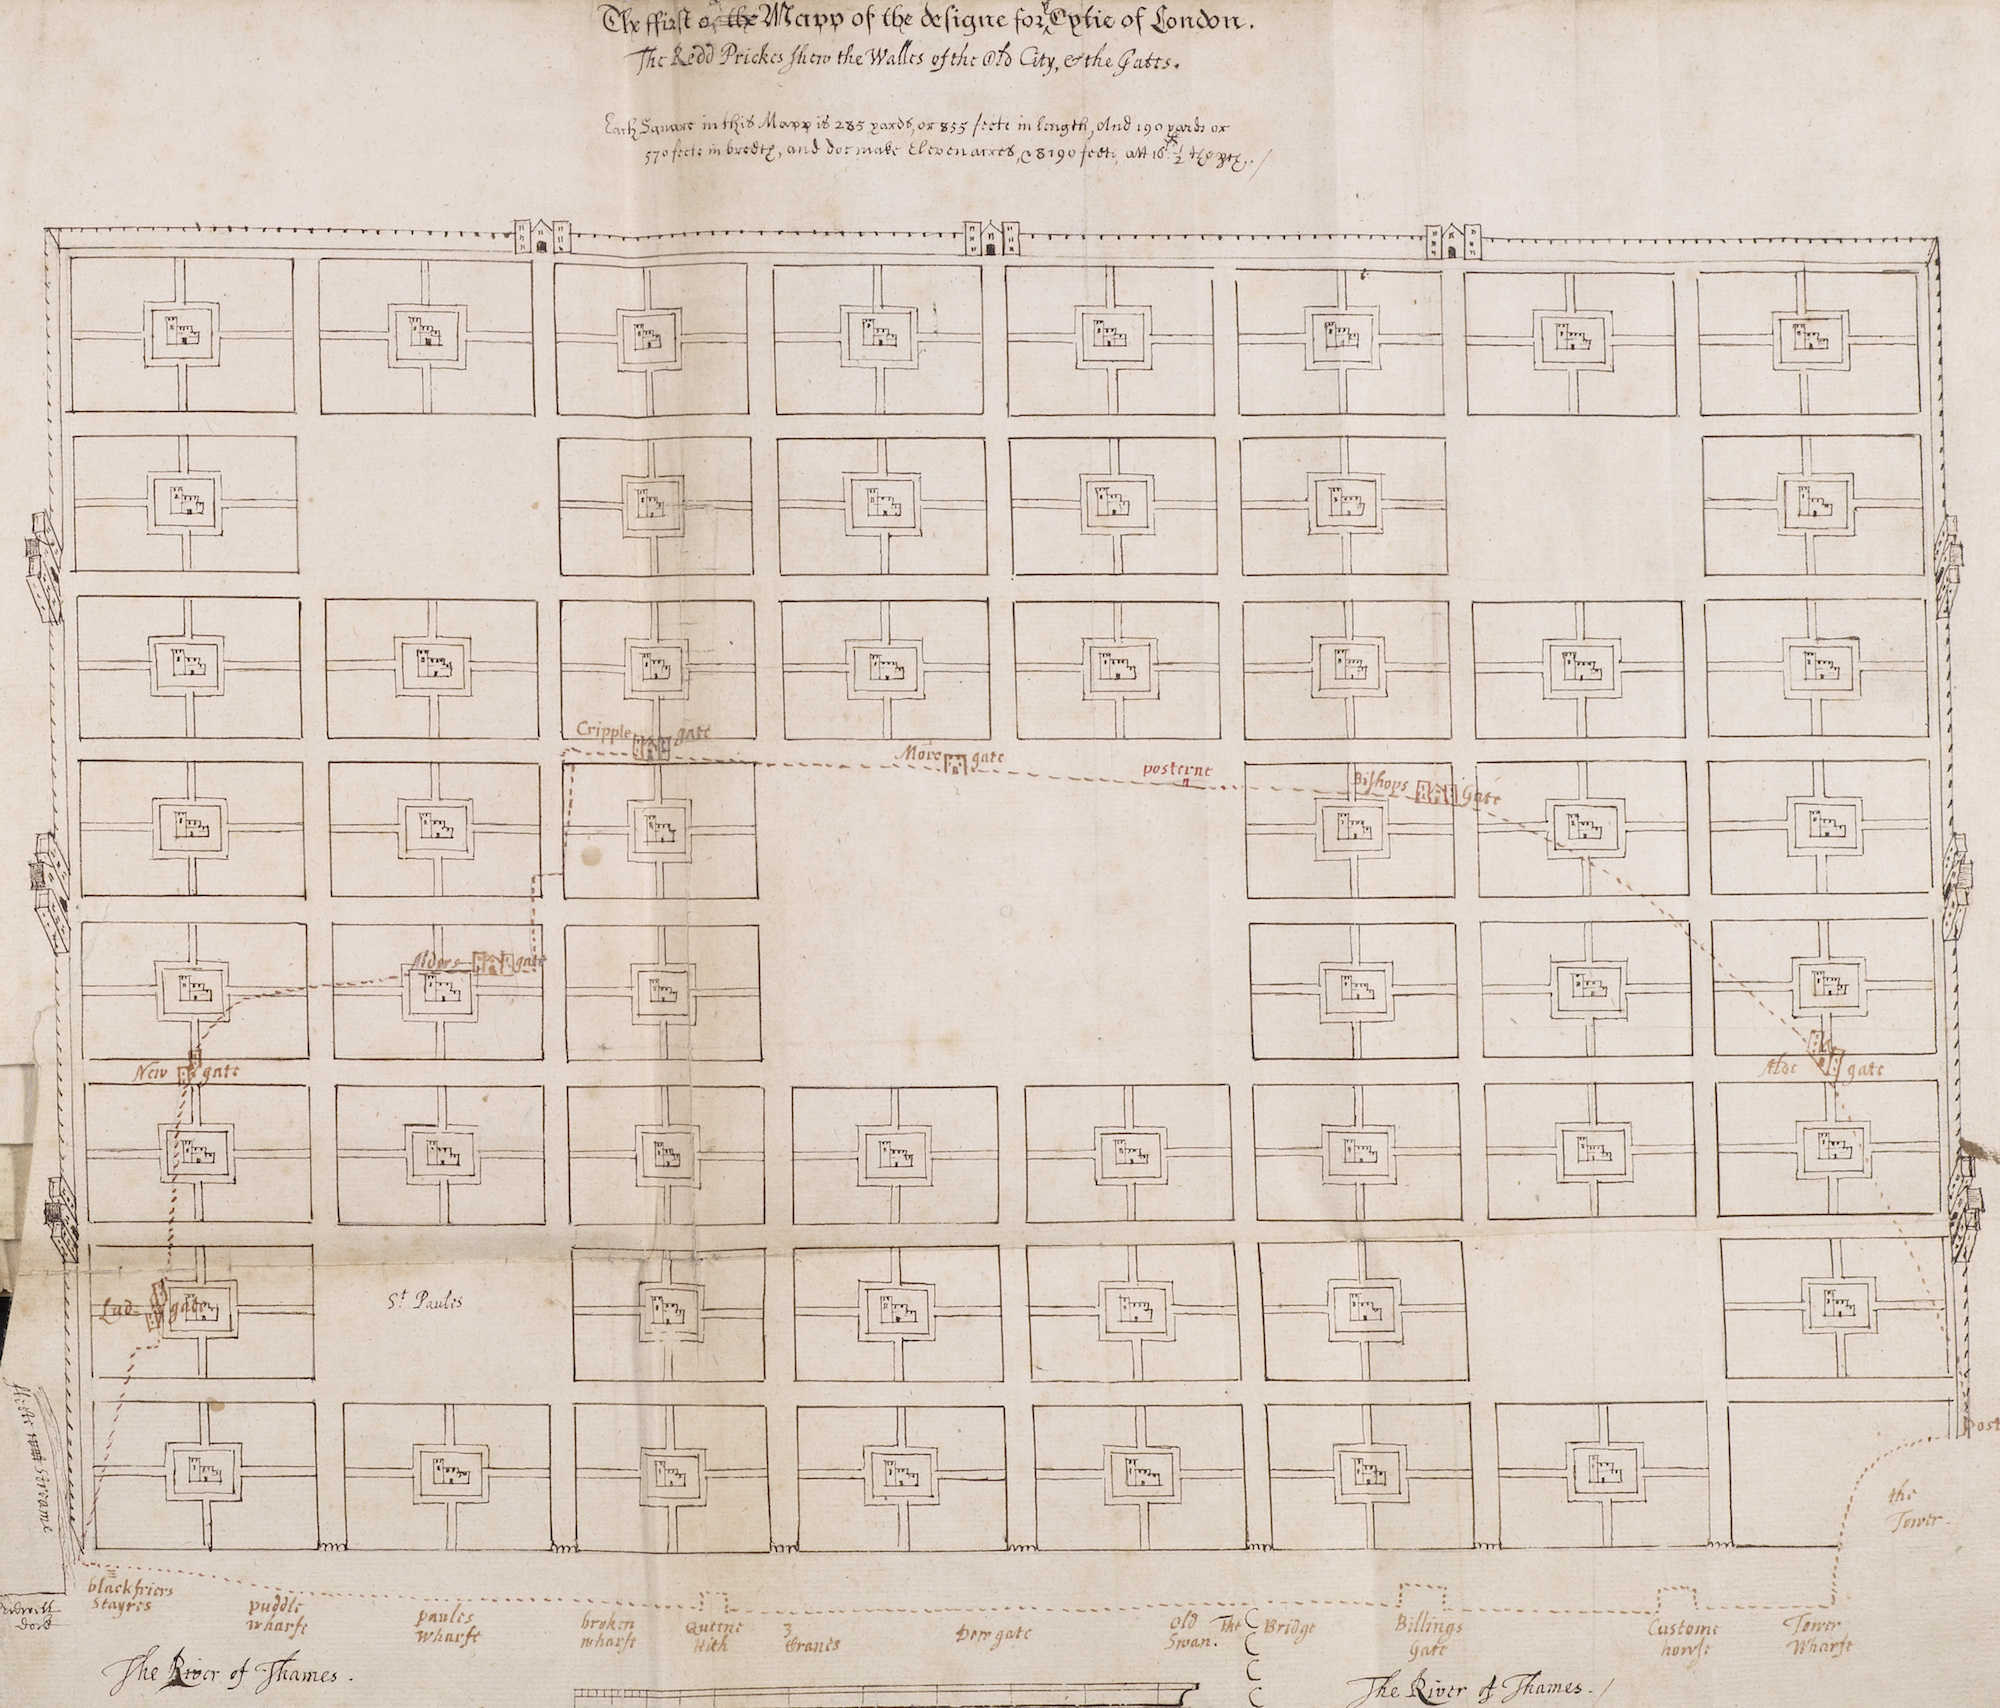 The ffirst of the Mapp of the designe for yᵉ Cytie of London.
The Redd Prickes shew the Walles of the Old City, & the Gates.
Each Square in this Mapp is 285 yards, or 855 feete in length, And 190 yards or
570 feete in bredth, and doe make Eleven acres, & 8190 feete, att 16 ½
Cripple gate
More gate
posterne
Bishops Gate
Alders gate
New gate
Alde gate
Lud gate
Sᵗ Paules
Post
the
Tower.
blackfriers
Stayres
puddle
wharfe
paules
wharfe
broken
wharfe
Queene
Hith
3
Cranes
Dowgate
Old
Swan.
The Bridge
Billings
Gate
Custome
howse
Tower
Wharfe
Bridwell
dock
The River of Thames.
The River of Thames.